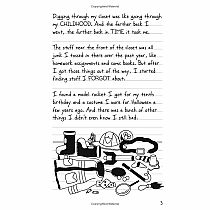 (Copyrighted Material)
Digging through my closet was like going through
my CHILDHOOD. And the farther back I
went, the farther back in TIME it took me.
The stuff near the front of the closet was all
junk I tossed in there over the past year, like
homework assignments and comic books. But after
I got those things out of the way, I started
finding stuff I FORGOT about.
I found a model rocket I got for my tenth
birthday and a costume I wore for Halloween a
few years ago. And there was a bunch of other
things I didn't even know I still had.
3
(Copyrighted Material)